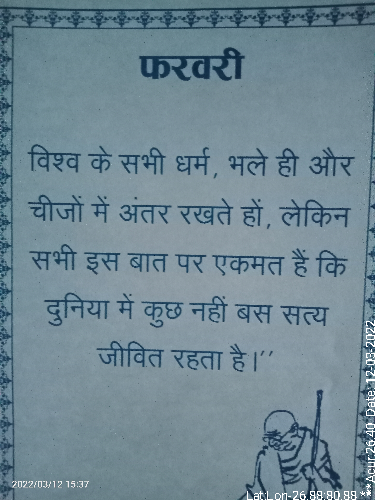 फरवरी
विश्व के सभी धर्म, भले ही और
चीजों में अंतर रखते हों, लेकिन
सभी इस बात पर एकमत हैं कि
दुनिया में कुछ नहीं बस सत्य
जीवित रहता है।’’
2022/03/12 15:37
Lat:Lon-26.88:80.88 ***Acur:26.40 Date:12-03-2022